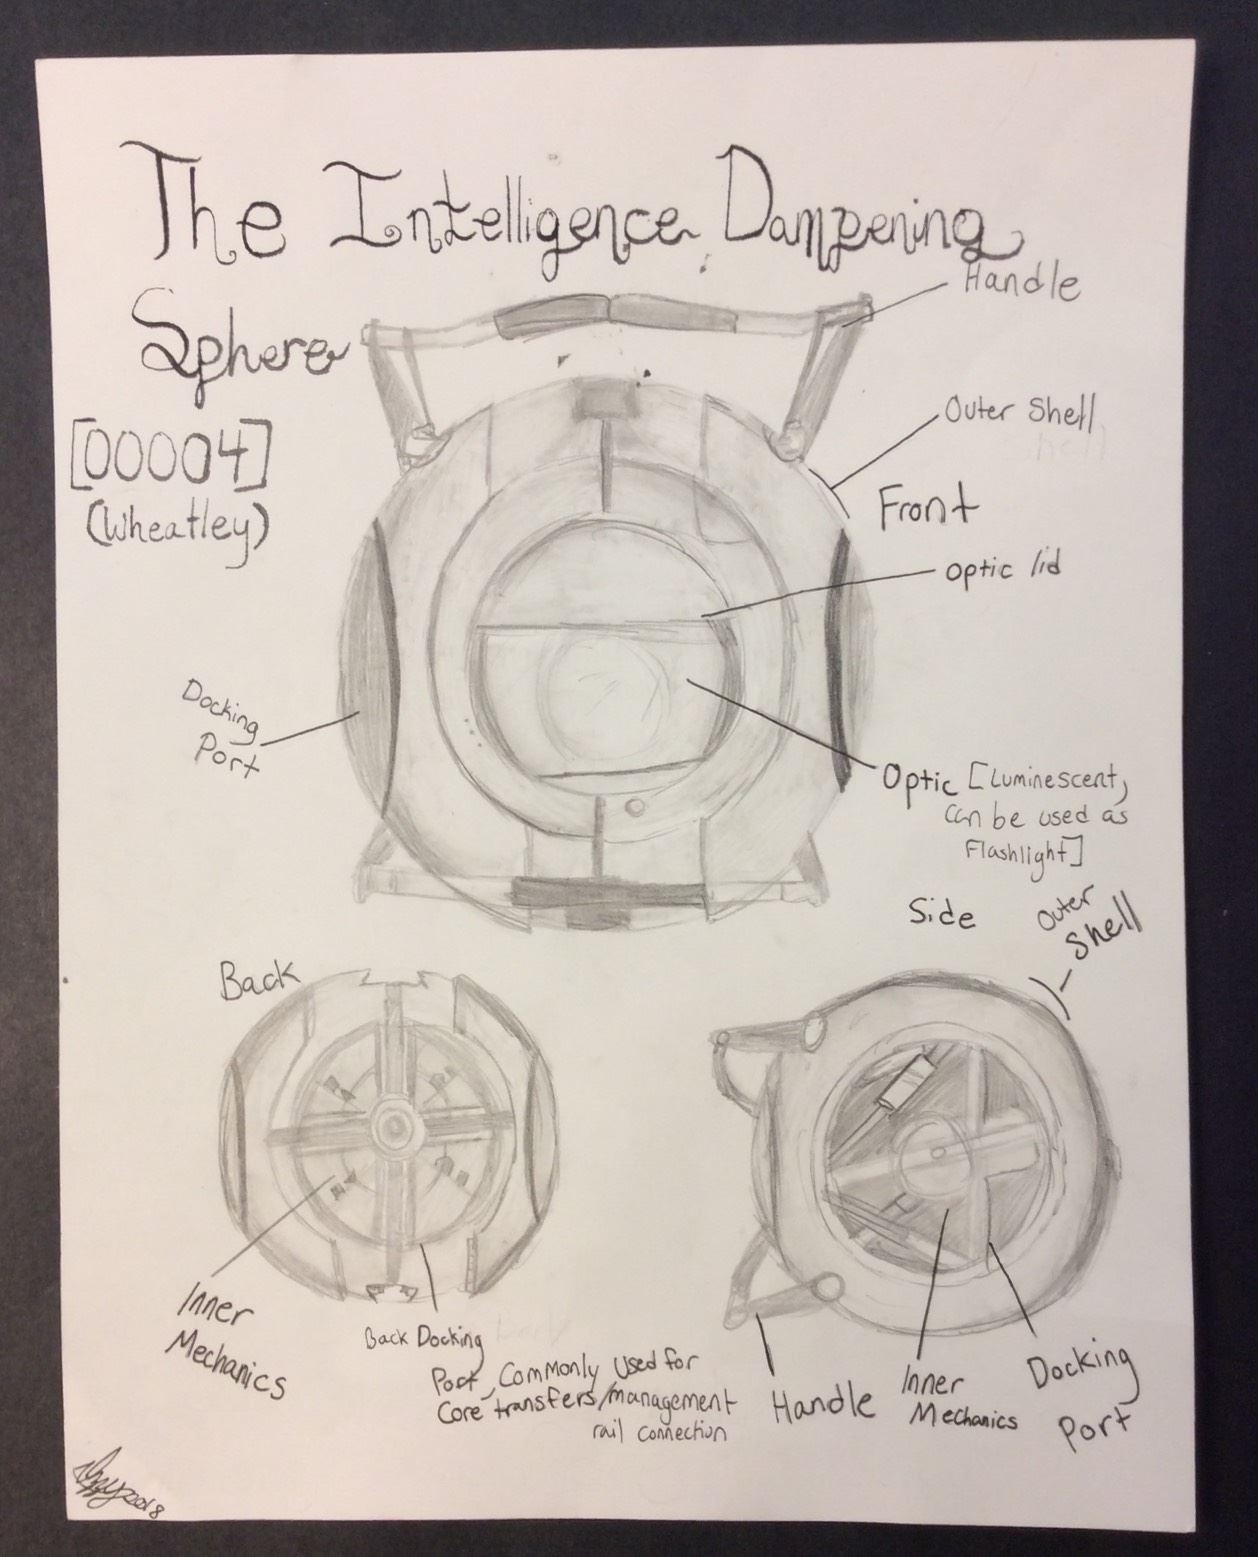 The Intelligence Dampening
Sphere
[00004]
(Wheatley)
Handle
Outer Shell
Front
optic lid
Docking
Port
Optic [Luminescent,
can be used as
Flashlight]
Side
Outer
Shell
Back
Inner
Mechanics
Back Docking
Port, Commonly used for
Core transfers/management
rail connection
Handle
Inner
Mechanics
Docking
Port
2018